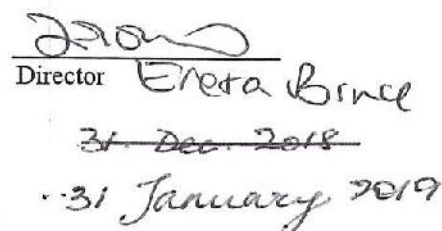 Director Enera Bince
31 Dec. 2018
31 January 2019